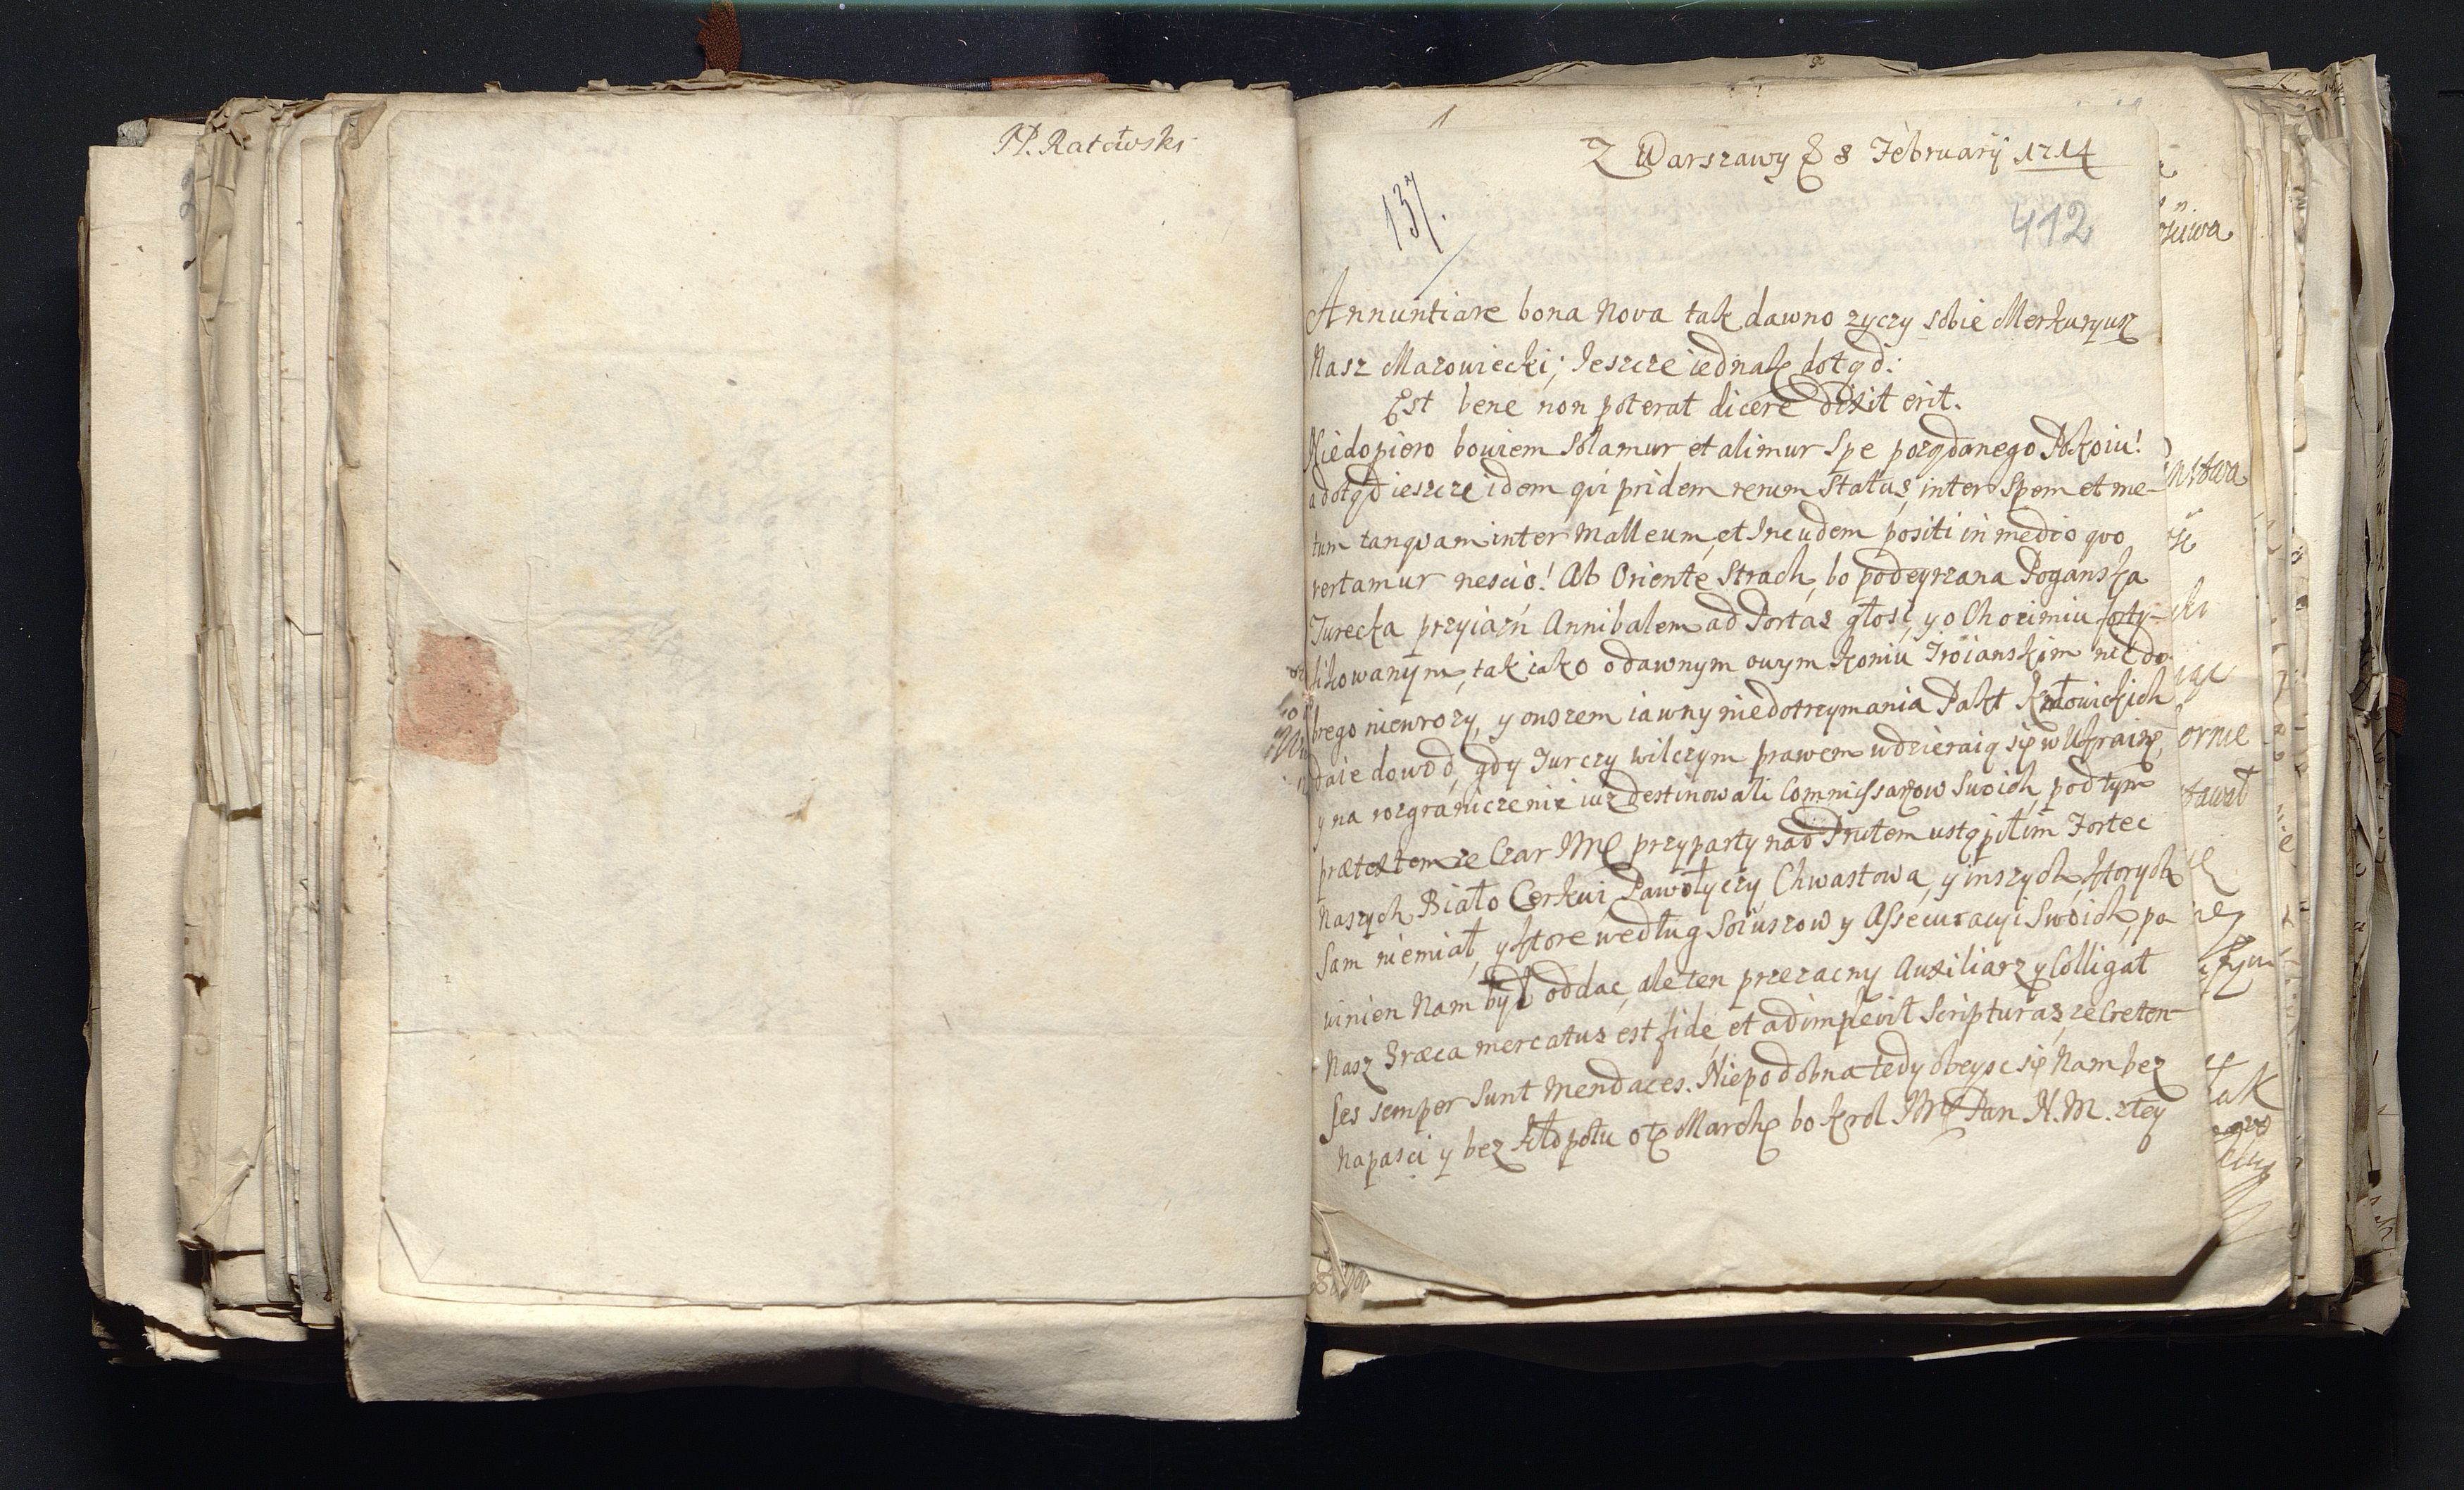 JP. Ratowski
1
Z Warszawy D 8 Februarij 1714
137.
412
Annuntiare bona nova tak dawno zyczy sobie Merkuryusz
Nasz Mazowiecki; Jeszcze iednak dotąd:
Est bene non poterat dicere dixit erit.
Niedopiero bowiem Solamur et alimur Spe pożądanego Pokoiu!
a dotąd ieszcze idem qui pridem rerum Status, inter Spem et me-
tum tanqvam inter Malleum, et Incudem positi in medio qvo
vertamur nescio! Ab Oriente Strach, bo podeyrzana Poganska
Turecka przyiazń Annibalem ad Portas głosi, y o Chocimiu forty-
fikowanym, tak iako o dawnym owym koniu Troianskim nic do-
brego niewrozy, y owszem iawny niedotrzymania Pakt Karłowickich
daie dowod, gdy Turczy wilczym prawem wdzieraią się w Ukrainę,
y na rozgraniczenie iuz destinowali Commissarzow Swoich, pod tym
prætextem ze Czar JMć przyparty nad Prutem ustąpił im Fortec
Naszych Biało Cerkwi, Pawołyczy, Chwastowa, y inszych, ktorych
Sam niemiał, y ktore według Soiuszow y Assecuracyi Swoich, po
winien Nam był oddac, ale ten przezacny Auxiliarz y Colligat
Nasz Græca mercatus est fide, et adimplevit Scripturas, ze Creten-
ses semper Sunt Mendaces. Niepodobna tedy obeysc się Nam bez
Napasci y bez kłopotu o tę Marchę bo krol JMć Pan N. M. z tey